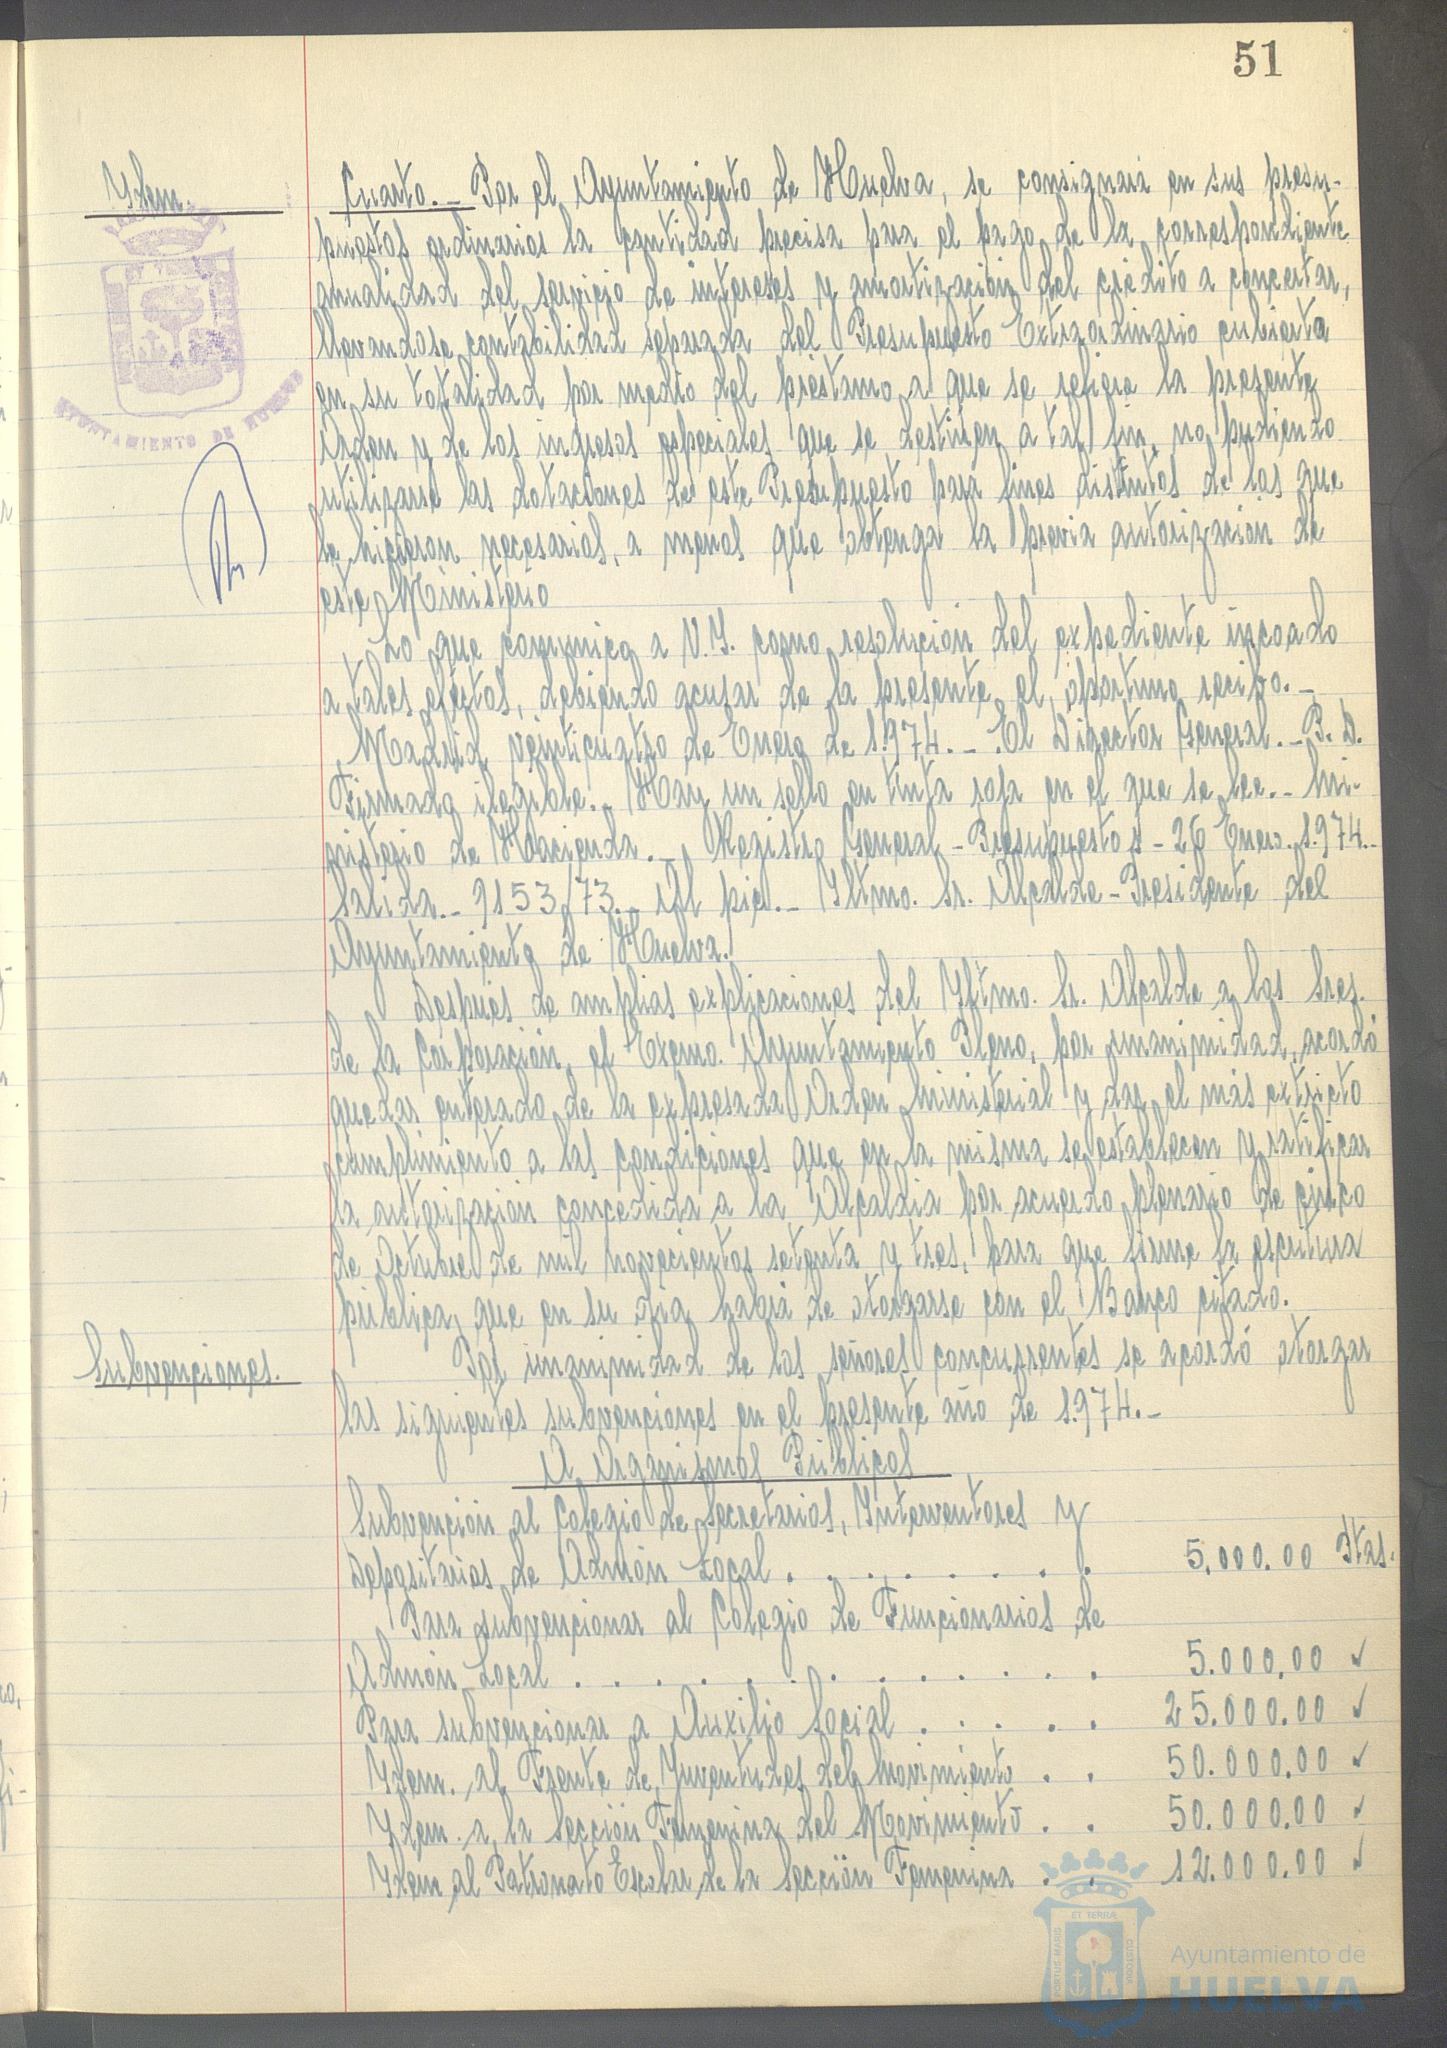 51
Ydem.
Cuarto.- Por el Ayuntamiento de Huelva, se consignará en sus presu-
puestos ordinarios la cantidad precisa para el pago de la correspondiente
anualidad del servicio de intereses y amortización del crédito a concertar,
llevandose contabilidad separada del Presupuesto Extraordinario cubierto
en su totalidad por medio del préstamo a que se refiere la presente
Orden y de los ingresos especiales que se destinen a tal fin, no pudiendo
utilizarse las dotaciones de este Presupuesto para fines distintos de los que
le hicieron necesarios, a menos que obtenga la previa autorización de
este Ministerio
Lo que comunico a V.Y. como resolución del expediente incoado
a tales efectos, debiendo acusar de la presente el oportuno recibo.-
Madrid veinticuatro de Enero de 1.974.- El Director General.- P.D.
Firmado ilegible.- Hay un sello en tinta roja en el que se lee.- Mi-
nisterio de Hacienda.- Registro General - Presupuestos - 26 Enero. 1.974.-
Salida.- 9153/73.- Al pie.- Yltmo. Sr. Alcalde-Presidente del
Ayuntamiento de Huelva.
Después de amplias explicaciones del Yltmo. Sr. Alcalde a los Sres.
de la Corporación, el Excmo. Ayuntamiento Pleno, por unanimidad, acordó
quedar enterado de la expresada Orden Ministerial y dar el más extricto
cumplimiento a las condiciones que en la misma se establecen y ratificar
la autorización concedida a la Alcaldia por acuerdo plenario de cinco
de Octubre de mil novecientos setenta y tres, para que firme la escritura
pública, que en su dia habrá de otorgarse con el Banco citado.
Subvenciones.
Por unanimidad de los señores concurrentes se acordó otorgar
las siguientes subvenciones en el presente año de 1.974.-
A Organismos Públicos
Subvención al Colegio de Secretarios, Ynterventores y
Depositarios de Admón Local . . . . . . . . 5.000.00 Ptas.
Para subvencionar al Colegio de Funcionarios de
Admón Local . . . . . . . . . . . . . 5.000.00 ✓
Para subvencionar a Auxilio Social . . . . . 25.000.00 ✓
Ydem. al Frente de Juventudes del Movimiento . . 50.000.00 ✓
Ydem. a la Sección Femenina del Movimiento . . 50.000.00 ✓
Ydem al Patronato Escolar de la Sección Femenina . . 12.000.00 ✓
AYUNTAMIENTO DE HUELVA
PORTUS MARIS
ET TERRAE
CUSTODIA
Ayuntamiento de
HUELVA